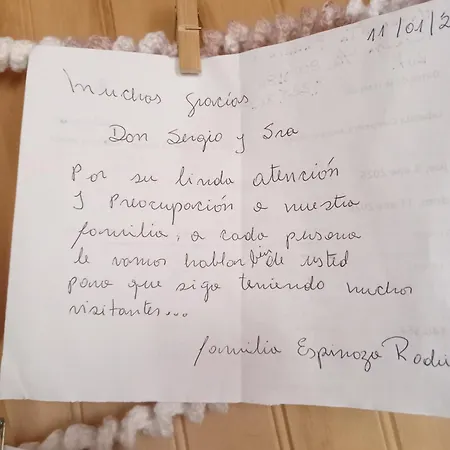 11/01/2
Muchas Gracias
Don Sergio y Sra
Por su linda atención
y Preocupación a nuestra
familia, a cada persona
le vamos hablar bien de usted
para que siga teniendo muchos
visitantes...
familia Espinoza Rodri